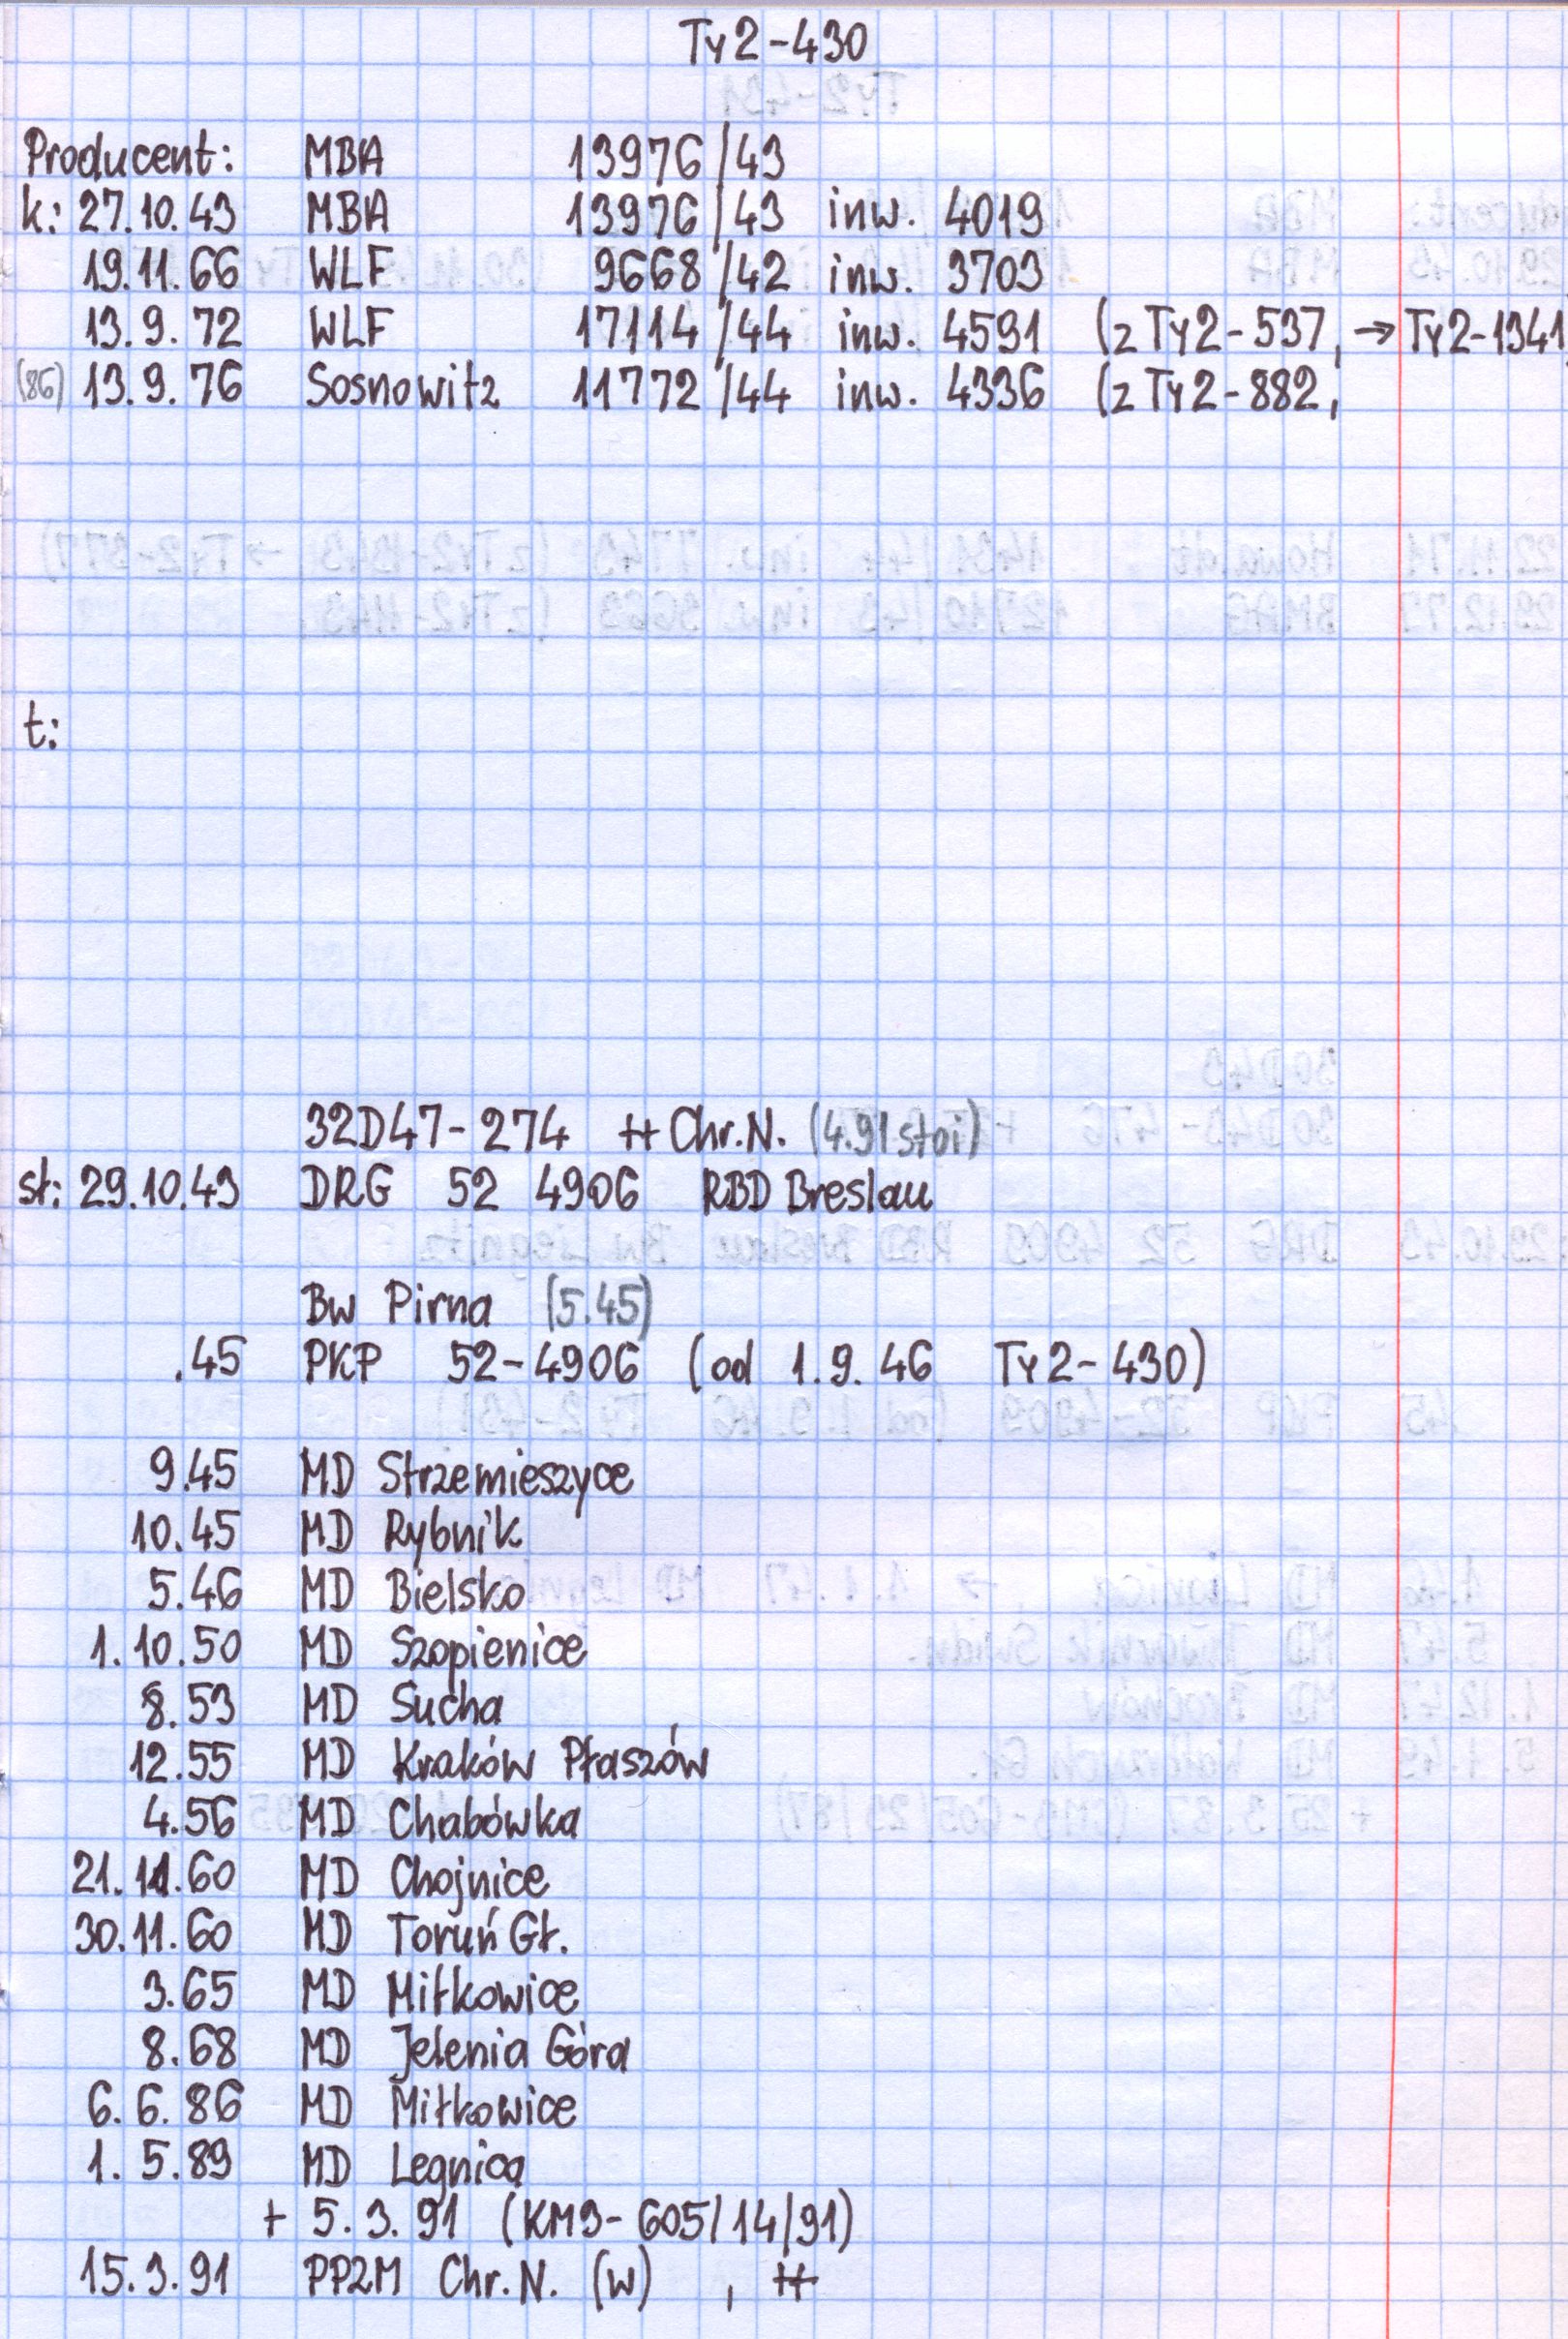 Ty2-430
Producent: MBA 13976/43
k: 27.10.43 MBA 13976/43 inw. 4019
19.11.66 WLF 9668/42 inw. 3703
13.9.72 WLF 17114/44 inw. 4591 (z Ty2-537, → Ty2-1341
(86) 13.9.76 Sosnowitz 11772/44 inw. 4336 (z Ty2-882,
t:
32D47-274 ++ Chr.N. (4.91 stoi)
st: 29.10.43 DRG 52 4906 RBD Breslau
Bw Pirna (5.45)
.45 PKP 52-4906 (od 1.9.46 Ty2-430)
9.45 MD Strzemieszyce
10.45 MD Rybnik
5.46 MD Bielsko
1.10.50 MD Szopienice
8.53 MD Sucha
12.55 MD Kraków Płaszów
4.56 MD Chabówka
21.11.60 MD Chojnice
30.11.60 MD Toruń Gł.
3.65 MD Miłkowice
8.68 MD Jelenia Góra
6.6.86 MD Miłkowice
1.5.89 MD Legnica
+ 5.3.91 (KM9-605/14/91)
15.3.91 PPZM Chr.N. (W) , ++